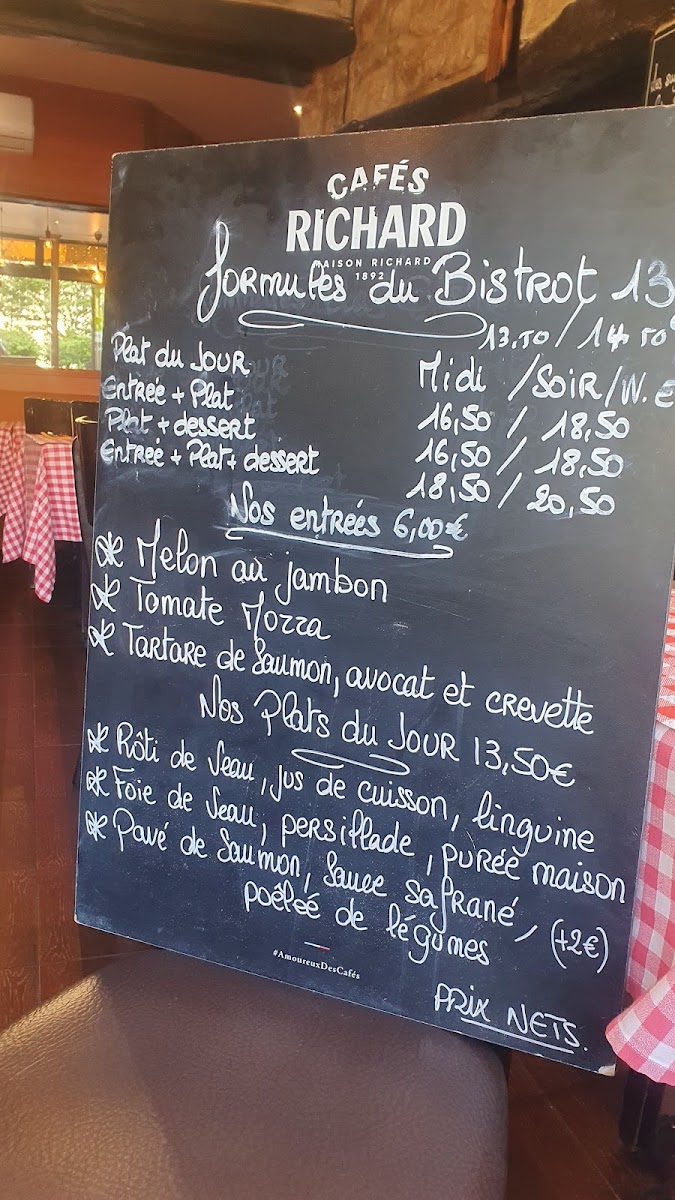 CAFÉS
RICHARD
MAISON RICHARD
1892
Formules du Bistrot 13
13,50 / 14,50
Plat du Jour
Midi / Soir / W.E
Entrée + Plat 16,50 / 18,50
Plat + dessert 16,50 / 18,50
Entrée + Plat + dessert 18,50 / 20,50
Nos entrées 6,00€
Melon au jambon
Tomate Mozza
Tartare de Saumon, avocat et crevette
Nos Plats du Jour 13,50€
Rôti de Veau, jus de cuisson, linguine
Foie de Veau, persillade, purée maison
Pavé de Saumon, Sauce safrané, (+2€)
poêleé de légumes
#AmoureuxDesCafés
PRIX NETS.